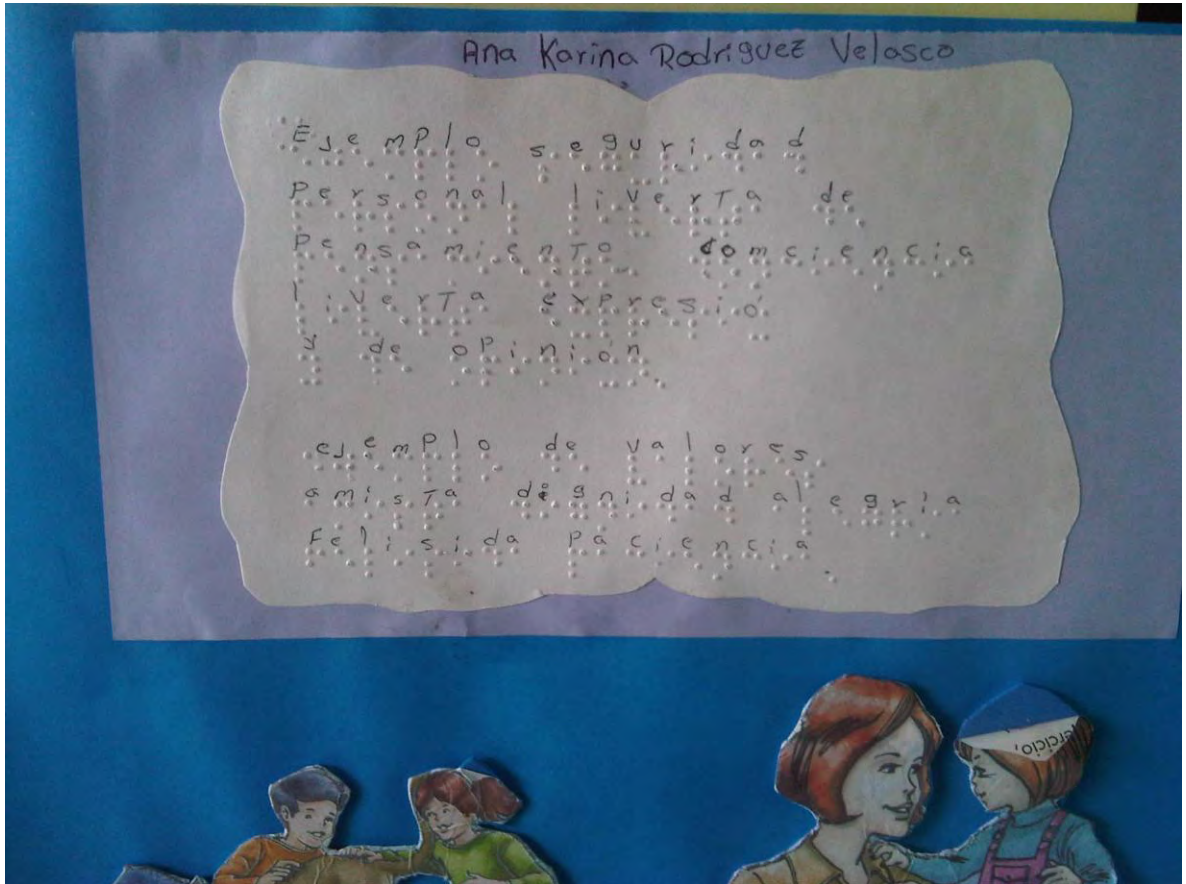 Ana Karina Rodriguez Velasco
Ejemplo seguridad
Personal liverTa de
PensamienTo comciencia
liverTa expresió
u de oPinión
ejemPlo de valores
amisTa dignidad alegria
Felisida Paciencia
ercicio,